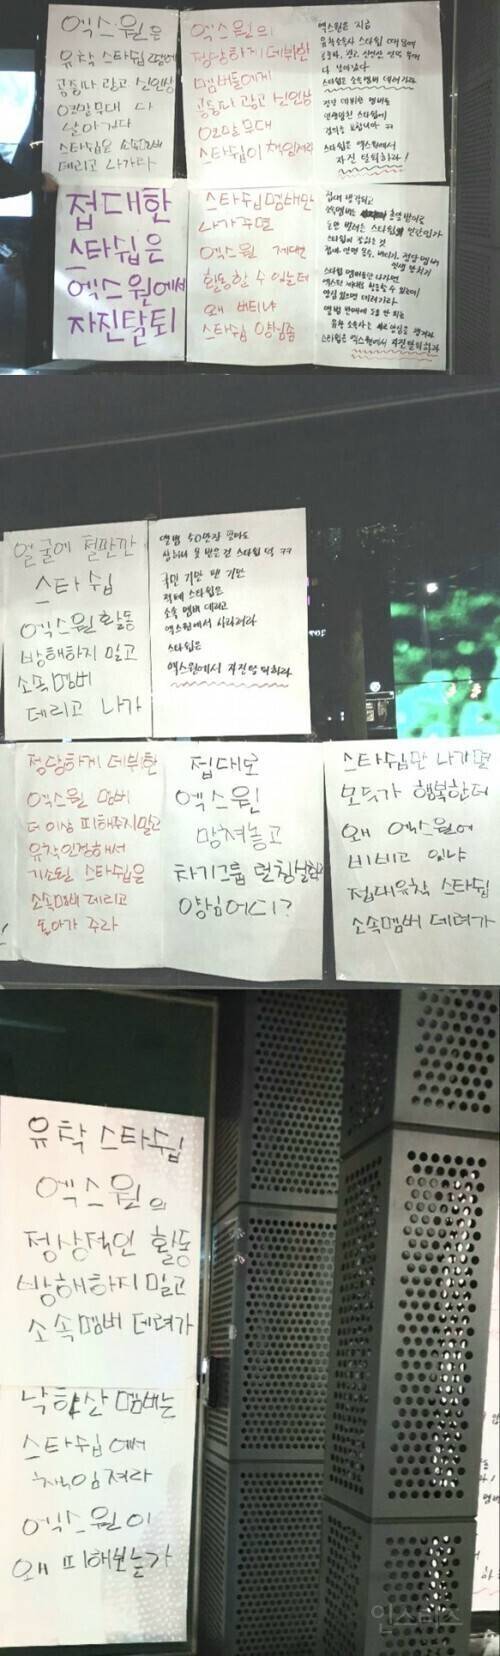 엑스원은
유착 스타쉽 땜에
공중파 광고 신인상
연말무대 다
날아갔다
스타쉽은 소속멤버
데리고 나가라
엑스원의
정당하게 데뷔한
멤버들에게
공중파 광고 신인상
연말무대
스타쉽이 책임져라
엑스원은 지금
유착소속사 스타쉽 때문에
다 날아갔다
스타쉽은 소속멤버 데려가라
정당 데뷔한 멤버들
스타쉽은 엑스원에서
자진 탈퇴하라!
접대한
스타쉽은
엑스원에서
자진탈퇴
스타쉽멤버만
나가주면
엑스원 제대로
활동할 수 있는데
왜 버티냐
스타쉽 양심좀
스타쉽 멤버들만 나가면
양심 있으면 데려가라
스타쉽은 엑스원에서 자진탈퇴하라
얼굴에 철판깐
스타쉽
엑스원 활동
방해하지 말고
소속멤버
데리고 나가
앨범 50만장 팔아도
상하나 못 받은 건 스타쉽 덕 ㅋㅋ
국민 기만 팬 기만
접대 스타쉽은
소속 멤버 데리고
엑스원에서 사라져라
스타쉽은
엑스원에서 자진탈퇴하라
정당하게 데뷔한
엑스원 멤버
더이상 피해주지말고
유착 인정해서
기소된 스타쉽은
소속멤버 데리고
돌아가 주라
접대로
엑스원
망쳐놓고
차기그룹 런칭
양심어디?
스타쉽만 나가면
모두가 행복한데
왜 엑스원에
비비고 있냐
접대유착 스타쉽
소속멤버 데려가
유착 스타쉽
엑스원의
정상적인 활동
방해하지말고
소속멤버 데려가
낙하산 멤버는
스타쉽에서
책임져라
엑스원이
왜 피해보는가
인스티즈